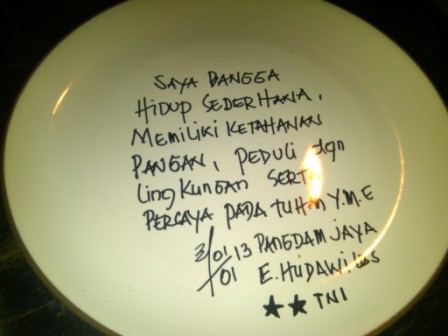 SAYA BANGGA
HIDUP SEDERHANA,
MEMILIKI KETAHANAN
PANGAN, PEDULI dgn
LINGKUNGAN SERT
PERCAYA PADA TUHAN Y.M.E
3/01 13 PANGDAM JAYA
01 E. HUDAWI
★★ TNI